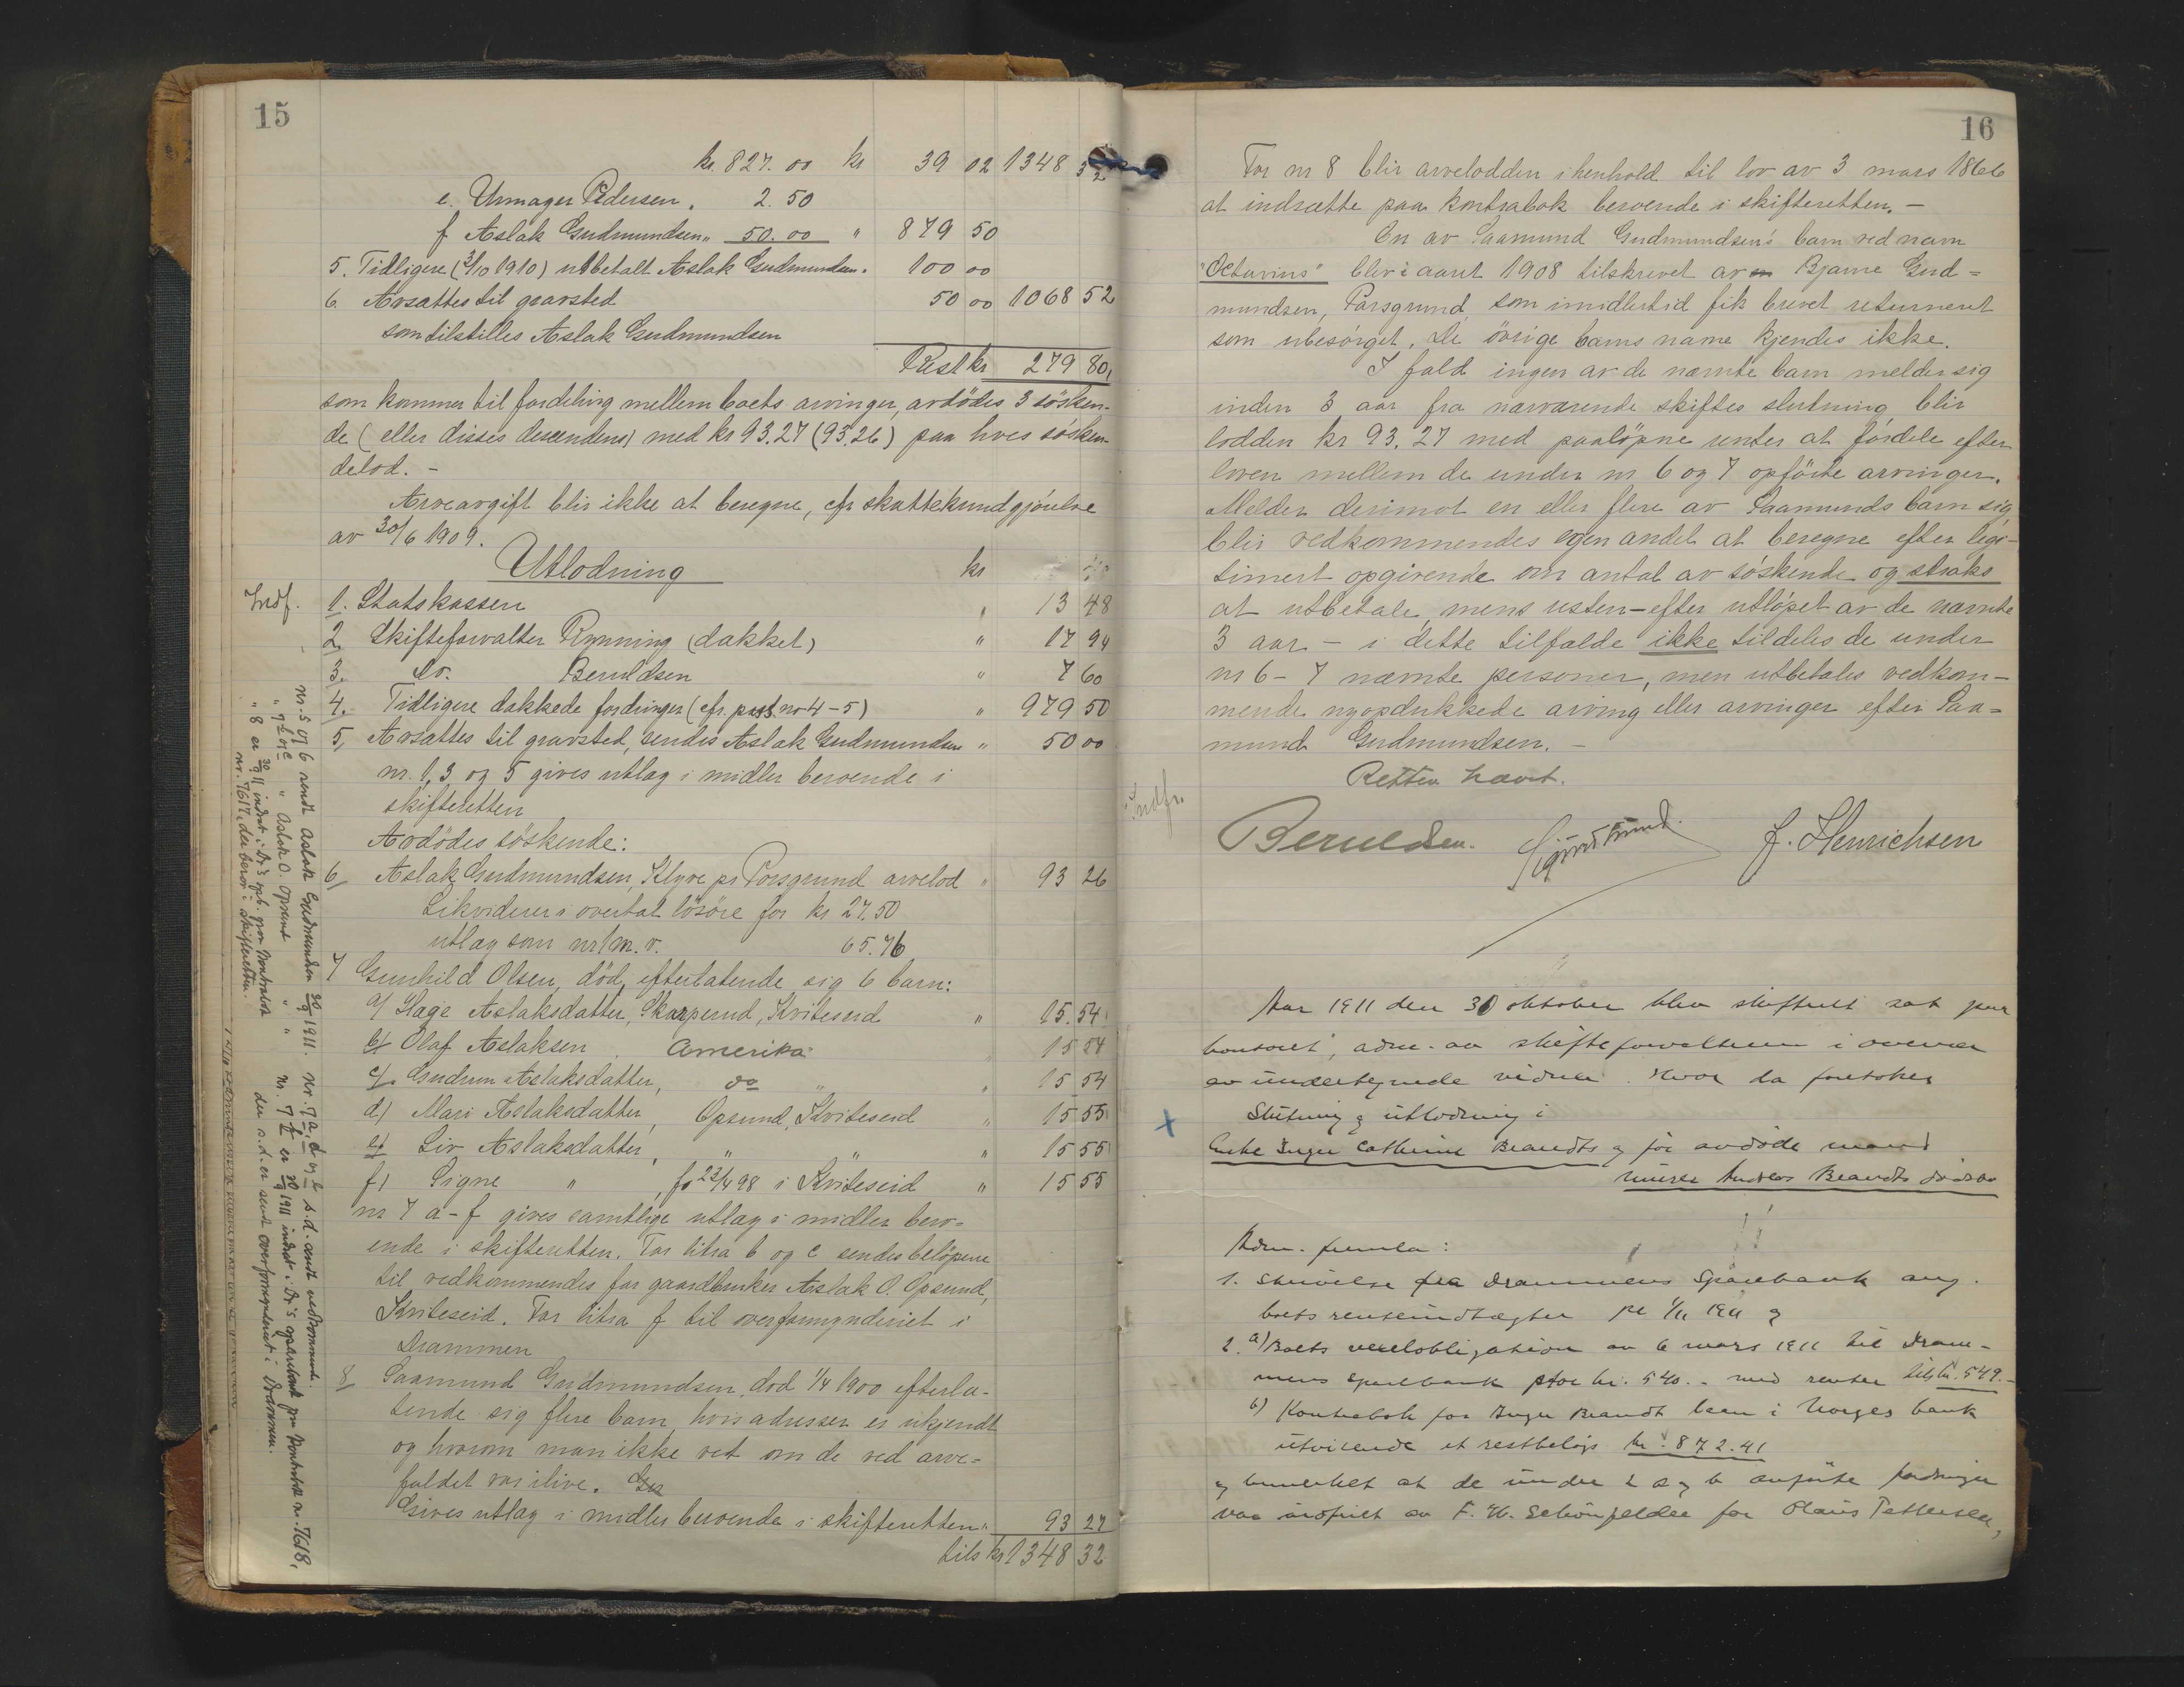 15
kr. 827. 00 kr 39 02 1348 32
e. Urmager Pedersen „ 2. 50
f Aslak Gudmundsen „ 50. 00 „ 879 50
5. Tidligere (3/10 1910) utbetalt Aslak Gudmundsen. 100 00
6 Avsættes til gravsted 50 00 1068 52
som tilstilles Aslak Gudmundsen
Rest kr 279 80,
som kommer til fordeling mellem boets arvinger, avdødes 3 søsken-
de (eller disses descendens) med kr 93.27 (93.26) paa hver søsken-
delod. -
Arveavgift blir ikke at beregne, cfr skattekundgjørelse
av 30/6 1909.
Utlodning kr
Indf. 1. Statskassen „ 13 48
2 Skifteforvalter Rynning (dækket) „ 17 94
3. do. Beruldsen „ 7 60
4. Tidligere dækkede fordringer (cfr. post no 4-5) „ 979 50
5, Avsættes til gravsted, sendes Aslak Gudmundsen „ 50 00
nr. 1, 3 og 5 gives utlæg i midler beroende i
skifteretten
Avdødes søskende:
6/ Aslak Gudmundsen, Klyve pr Porsgrund arvelod „ 93 26
Likviderer i overtat løsøre for kr 27.50
utlæg som nr 1 m. v. 65.76
7 Gunhild Olsen, død, efterlatende sig 6 barn:
a/ Hage Aslaksdatter, Skarperud, Kviteseid „ 15. 54
b/ Olaf Aslaksen, Amerika „ 15 54
c/. Gudrun Aslaksdatter, do „ 15 54
d) Mari Aslaksdatter, Opsund, Kviteseid „ 15 55
e/ Liv Aslaksdatter, „ „ 15 55
f) Signe „ , fø 23/4 98 i Kviteseid „ 15 55
nr 7 a - f gives samtlige utlæg i midler bero-
ende i skifteretten. For litra b og c sendes beløpene
til vedkommendes far gaardbruker Aslak O. Opsund,
Kviteseid. For litra f til overformynderiet i
Drammen
8/ Saamund Gudmundsen, død 1/4 1900 efterla-
tende sig flere barn, hvis adresser er ukjendt
og hvorom man ikke vet om de ved arve-
faldet var ilive.
Gives utlæg i midler beroende i skifteretten „ 93 27
tils kr 1348 32
nr. 5 og 6 sendt Aslak Gudmundsen 30/9 1911. nr. 7 a, d og e s.d. sendt vedkommende.
„ 7 b og c „ Aslak O. Opsund „ „ nr. 7 f er 30/9 1911 indsat i Dr's sparebank paa kontrabok nr. 7618,
„ 8 er 30/9 11 indsat i Dr's spb. paa kontrabok den s.d. er sendt overformynderiet i Drammen.
nr. 7617, der beror i skifteretten.
16
For nr 8 blir arvelodden i henhold til lov av 3 mars 1866
at indsætte paa kontrabok beroende i skifteretten. -
En av Saamund Gudmundsen's barn ved navn
"Octavius" blev i aaret 1908 tilskrevet av Bjarne Gud=
mundsen, Porsgrund, som imidlertid fik brevet returneret
som ubesørget. De øvrige barns navne kjendes ikke.
I fald ingen av de nævnte barn melder sig
inden 3 aar fra nærværende skiftes slutning blir
lodden kr 93. 27 med paaløpne renter at fordele efter
loven mellem de under nr 6 og 7 opførte arvinger.
Melder derimot en eller flere av Saamunds barn sig,
blir vedkommendes egen andel at beregne efter legi-
timert opgivende om antal av søskende og straks
at utbetale, mens resten - efter utløpet av de nævnte
3 aar - i dette tilfælde ikke tildeles de under
nr 6 - 7 nævnte personer, men utbetales vedkom-
mende nyopdukkede arving eller arvinger efter Saa=
mund Gudmundsen. -
Retten hævet.
Indf.
Beruldsen. J. Henrichsen
Aar 1911 den 30 oktober blev skifteret sat paa
kontoret, adm. av skifteforvalteren i overvær
av undertegnede vidner. Hvor da foretokes
Slutning og utlodning i
Enke Inger Cathrine Brandts og før avdøde mand
murer Andreas Brandts dødsbo
Adm. fremla:
1. Skrivelse fra Drammens Sparebank ang.
boets renteindtægter pr 1/11 1911 og
2. a) Boets vexelobligation av 6 mars 1911 til Dram-
mens sparebank stor kr. 540.- med renter tils kr. 549.-
b) Kontrabok for Inger Brandt laan i Norges bank
utvisende et restbeløp kr. 872.41
og bemerket at de under 2 a og b anførte fordringer
var indfriet av F. W. Schönfelder for Olaus Pettersen,